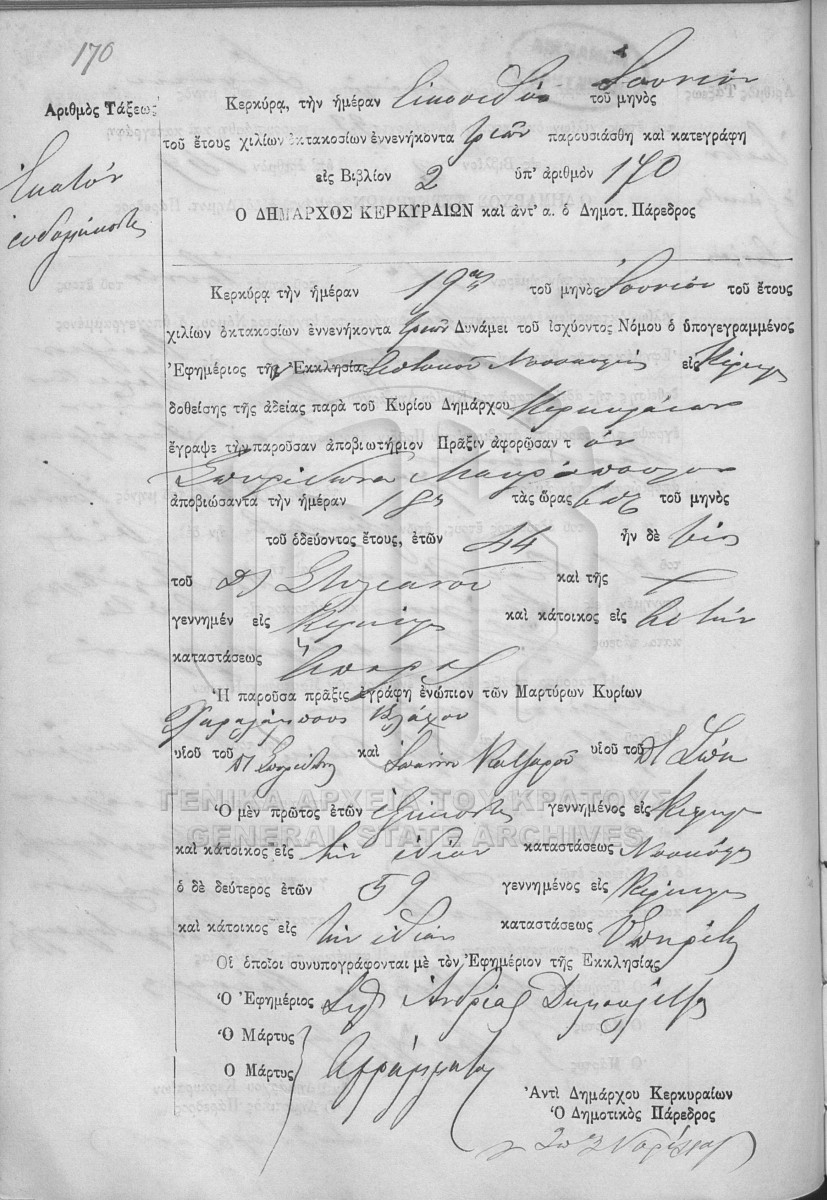 170
Ἀριθμὸς Τάξεως
Ἑκατὸν
ἑβδομήκοντα
Κερκύρᾳ, τὴν ἡμέραν Εἰκοσιδύο τοῦ μηνὸς Ἰουνίου
τοῦ ἔτους χιλίων ὀκτακοσίων ἐννενήκοντα τριῶν παρουσιάσθη καὶ κατεγράφη
εἰς Βιβλίον 2 ὑπ' ἀριθμὸν 170
Ο ΔΗΜΑΡΧΟΣ ΚΕΡΚΥΡΑΙΩΝ καὶ ἀντ' α. ὁ Δημοτ. Πάρεδρος
Κερκύρᾳ τὴν ἡμέραν 19ην τοῦ μηνὸς Ἰουνίου τοῦ ἔτους
χιλίων ὀκτακοσίων ἐννενήκοντα τριῶν Δυνάμει τοῦ ἰσχύοντος Νόμου ὁ ὑπογεγραμμένος
Ἐφημέριος τῆς Ἐκκλησίας Νοσοκομείου εἰς Κέρκυρα
δοθείσης τῆς ἀδείας παρὰ τοῦ Κυρίου Δημάρχου Κερκυραίων
ἔγραψε τὴν παροῦσαν ἀποβιωτήριον Πρᾶξιν ἀφορῶσαν τ όν
Σπυρίδωνα Μαυρόπουλον
ἀποβιώσαντα τὴν ἡμέραν 18ην τὰς ὥρας 6 τοῦ μηνὸς
τοῦ ὁδεύοντος ἔτους, ἐτῶν 44 ἦν δὲ υἱὸς
τοῦ Στυλιανοῦ καὶ τῆς
γεννημέν εἰς Κέρκυρα καὶ κάτοικος εἰς αὐτήν
καταστάσεως ἄπορος
Ἡ παροῦσα πρᾶξις ἐγράφη ἐνώπιον τῶν Μαρτύρων Κυρίων
Χαραλάμπους Βλάχου
υἱοῦ τοῦ Σπυρίδωνος καὶ Ἰωάννου Κατσαροῦ υἱοῦ τοῦ
Ὁ μὲν πρῶτος ἐτῶν ἑξήκοντα γεννημένος εἰς Κέρκυρα
καὶ κάτοικος εἰς τὴν ἰδίαν καταστάσεως Νοσοκόμος
ὁ δὲ δεύτερος ἐτῶν 59 γεννημένος εἰς Κέρκυρα
καὶ κάτοικος εἰς τὴν ἰδίαν καταστάσεως Ὑπηρέτης
Οἱ ὁποῖοι συνυπογράφονται μὲ τὸν Ἐφημέριον τῆς Ἐκκλησίας
Ὁ Ἐφημέριος Ἀνδρέας
Ὁ Μάρτυς
Ὁ Μάρτυς Ἀγράμματοι
Ἀντὶ Δημάρχου Κερκυραίων
Ὁ Δημοτικὸς Πάρεδρος
ΓΕΝΙΚΑ ΑΡΧΕΙΑ ΤΟΥ ΚΡΑΤΟΥΣ
GENERAL STATE ARCHIVES